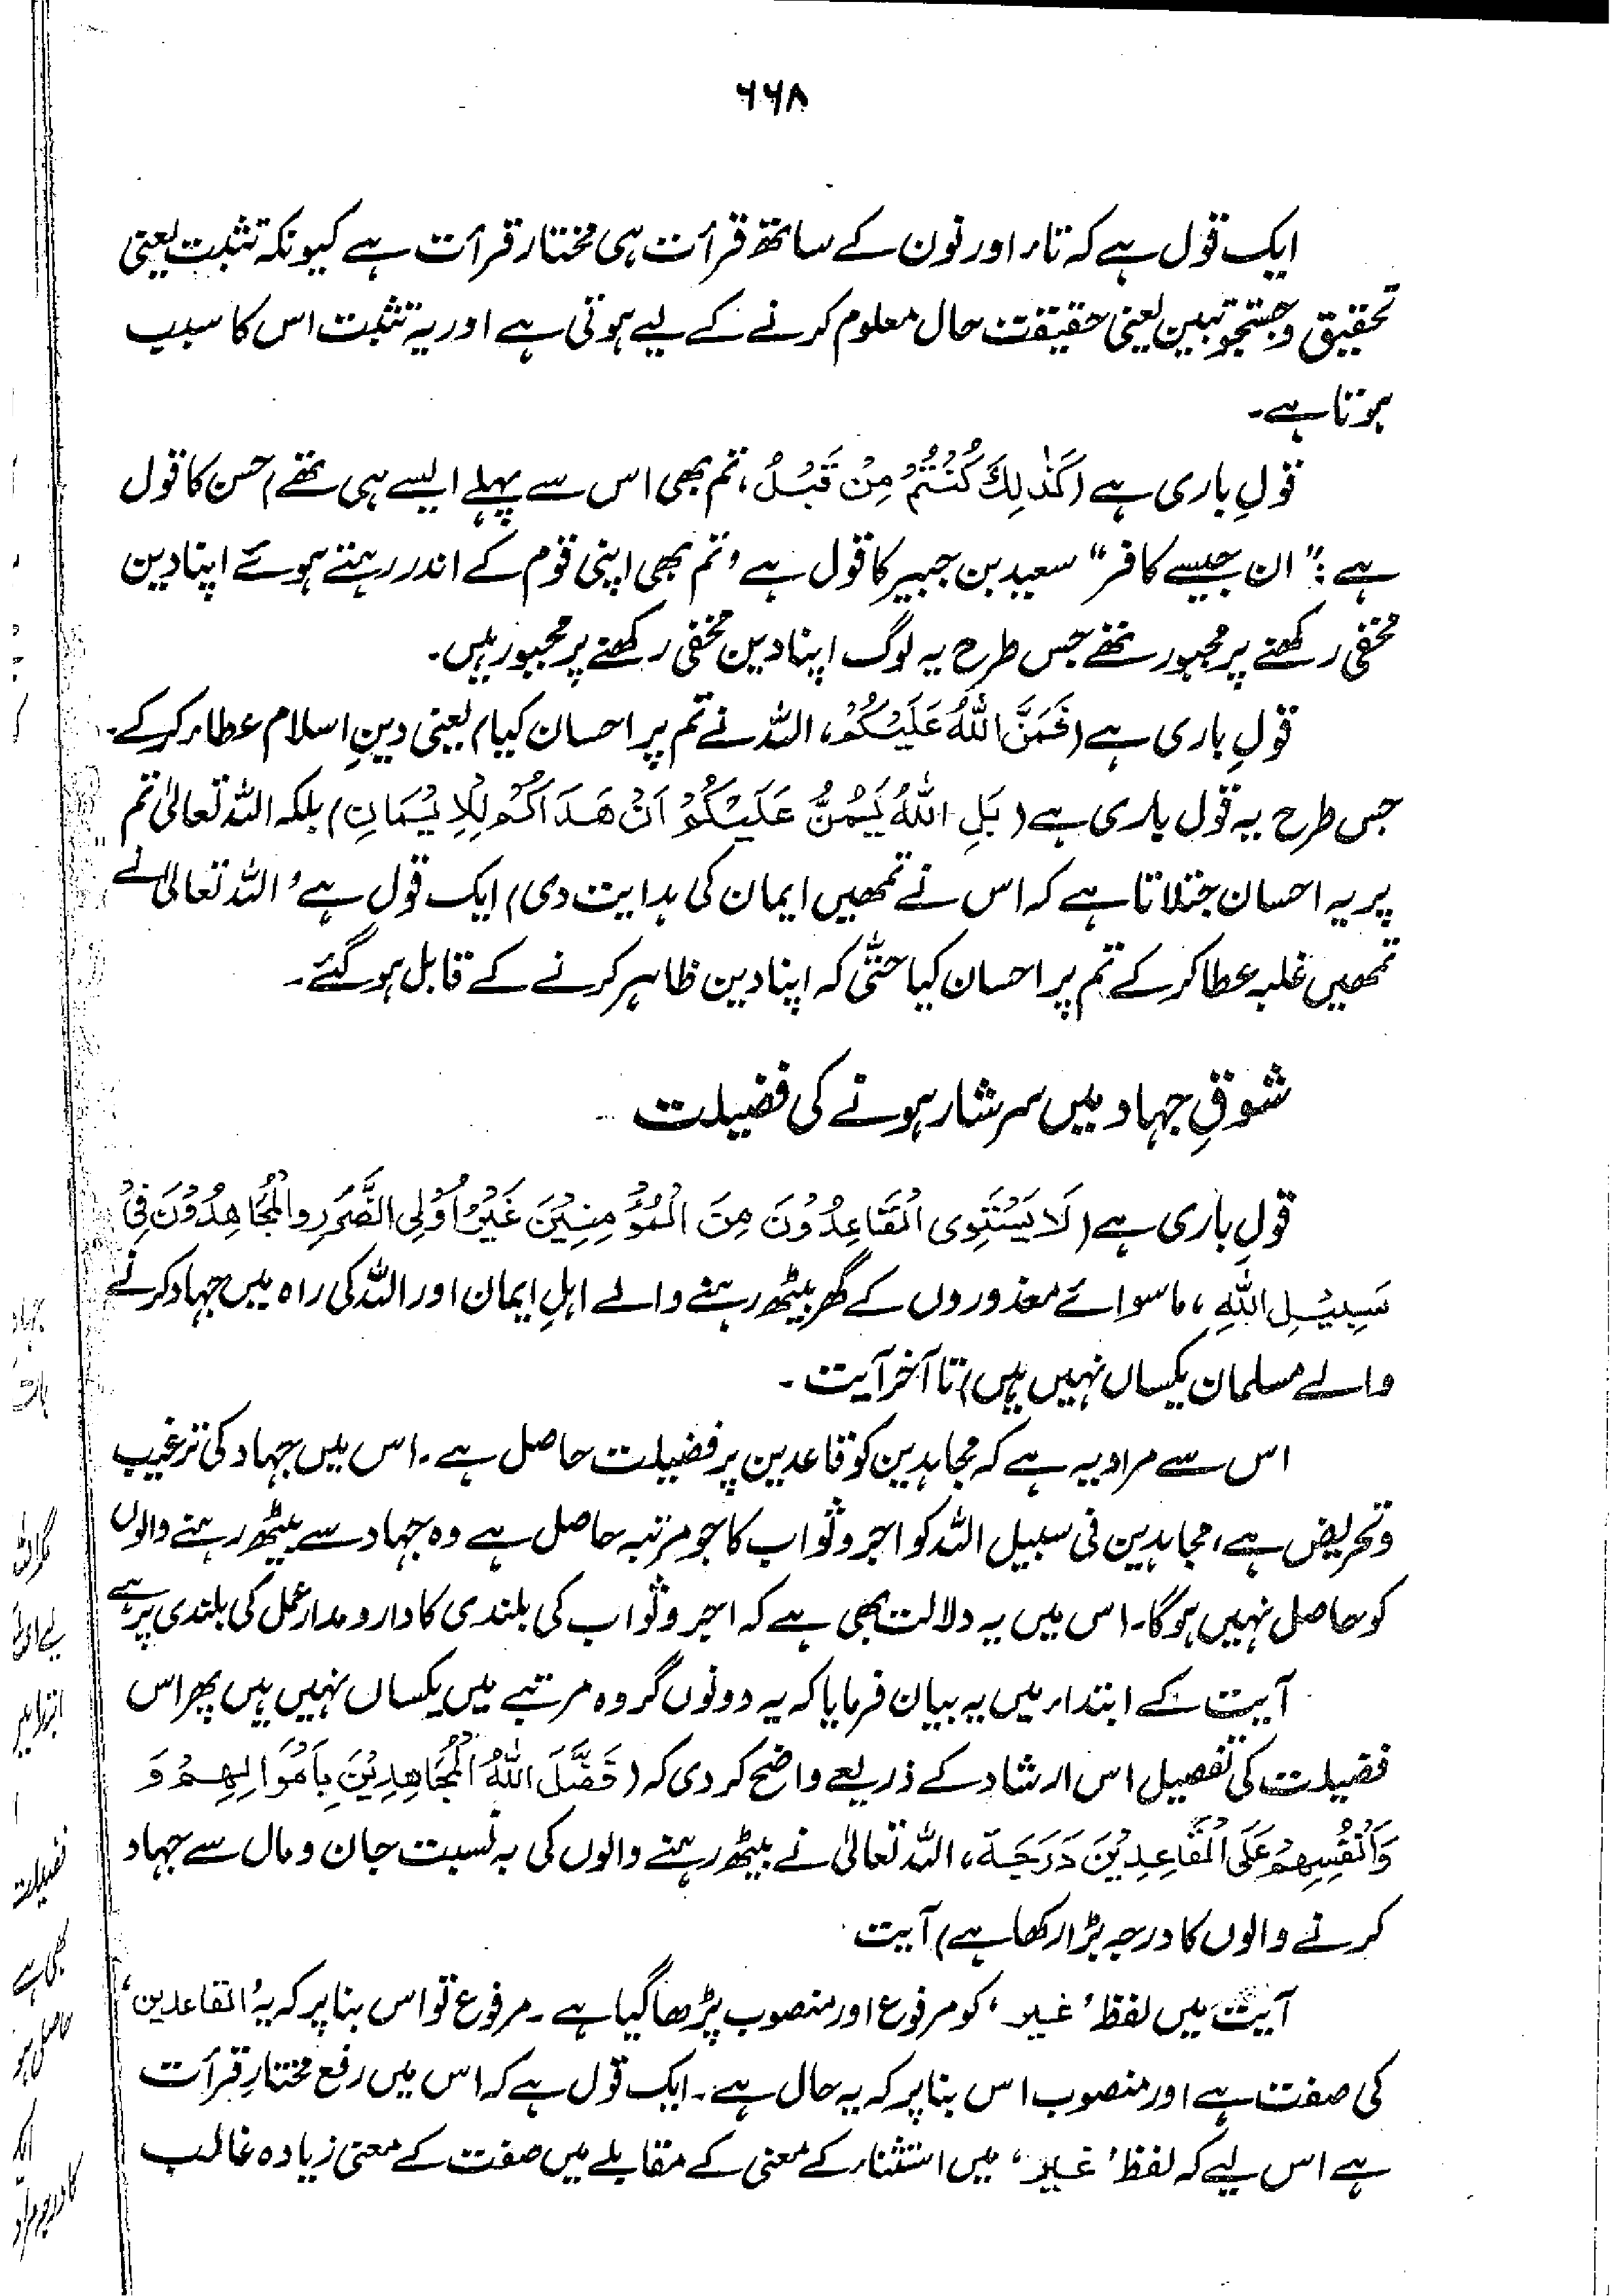 ۶۶۸
ایک قول ہے کہ تاء اور نون کے ساتھ قرأت ہی مختار قرأت ہے کیونکہ تثبت یعنی
تحقیق و جستجو تبین یعنی حقیقت حال معلوم کرنے کے لیے ہوتی ہے اور یہ تثبت اس کا سبب
ہوتا ہے۔
قولِ باری ہے (كَذٰلِكَ كُنْتُمْ مِنْ قَبْلُ، تم بھی اس سے پہلے ایسے ہی تھے) حسن کا قول
ہے :" ان جیسے کافر" سعید بن جبیر کا قول ہے ' تم بھی اپنی قوم کے اندر رہتے ہوئے اپنا دین
مخفی رکھنے پر مجبور تھے جس طرح یہ لوگ اپنا دین مخفی رکھنے پر مجبور ہیں۔
قولِ باری ہے (فَمَنَّ اللّٰهُ عَلَيْكُمْ، اللہ نے تم پر احسان کیا) یعنی دینِ اسلام عطاء کر کے۔
جس طرح یہ قول باری ہے (بَلِ اللّٰهُ يَمُنُّ عَلَيْكُمْ اَنْ هَدَاكُمْ لِلْاِيْمَانِ) بلکہ اللہ تعالیٰ تم
پر یہ احسان جتلاتا ہے کہ اس نے تمھیں ایمان کی ہدایت دی) ایک قول ہے ' اللہ تعالیٰ نے
تمھیں غلبہ عطا کر کے تم پر احسان کیا حتّٰی کہ اپنا دین ظاہر کرنے کے قابل ہو گئے۔
شوقِ جہاد میں سرشار ہونے کی فضیلت
قولِ باری ہے (لَا يَسْتَوِى الْقَاعِدُوْنَ مِنَ الْمُؤْمِنِيْنَ غَيْرُ اُولِى الضَّرَرِ والْمُجَاهِدُوْنَ فِىْ
سَبِيْلِ اللّٰهِ، ماسوائے معذوروں کے گھر بیٹھ رہنے والے اہلِ ایمان اور اللہ کی راہ میں جہاد کرنے
والے مسلمان یکساں نہیں ہیں) تا آخر آیت۔
اس سے مراد یہ ہے کہ مجاہدین کو قاعدین پر فضیلت حاصل ہے۔ اس میں جہاد کی ترغیب
و تحریض ہے، مجاہدین فی سبیل اللہ کو اجر و ثواب کا جو مرتبہ حاصل ہے وہ جہاد سے بیٹھ رہنے والوں
کو حاصل نہیں ہوگا۔ اس میں یہ دلالت بھی ہے کہ اجر و ثواب کی بلندی کا دارومدار عمل کی بلندی پر ہے
آیت کے ابتداء میں یہ بیان فرمایا کہ یہ دونوں گروہ مرتبے میں یکساں نہیں ہیں پھر اس
فضیلت کی تفصیل اس ارشاد کے ذریعے واضح کر دی کہ (فَضَّلَ اللّٰهُ الْمُجَاهِدِيْنَ بِاَمْوَالِهِمْ وَ
وَاَنْفُسِهِمْ عَلَى الْقَاعِدِيْنَ دَرَجَةً، اللہ تعالیٰ نے بیٹھ رہنے والوں کی بہ نسبت جان و مال سے جہاد
کرنے والوں کا درجہ بڑا رکھا ہے) آیت
آیت میں لفظ ' غیر ' کو مرفوع اور منصوب پڑھا گیا ہے۔ مرفوع تو اس بنا پر کہ یہ ' القاعدین '
کی صفت ہے اور منصوب اس بنا پر کہ یہ حال ہے۔ ایک قول ہے کہ اس میں رفع مختارِ قرأت
ہے اس لیے کہ لفظ ' غیر ' میں استثناء کے معنی کے مقابلے میں صفت کے معنی زیادہ غالب
جہاد
فضیلت